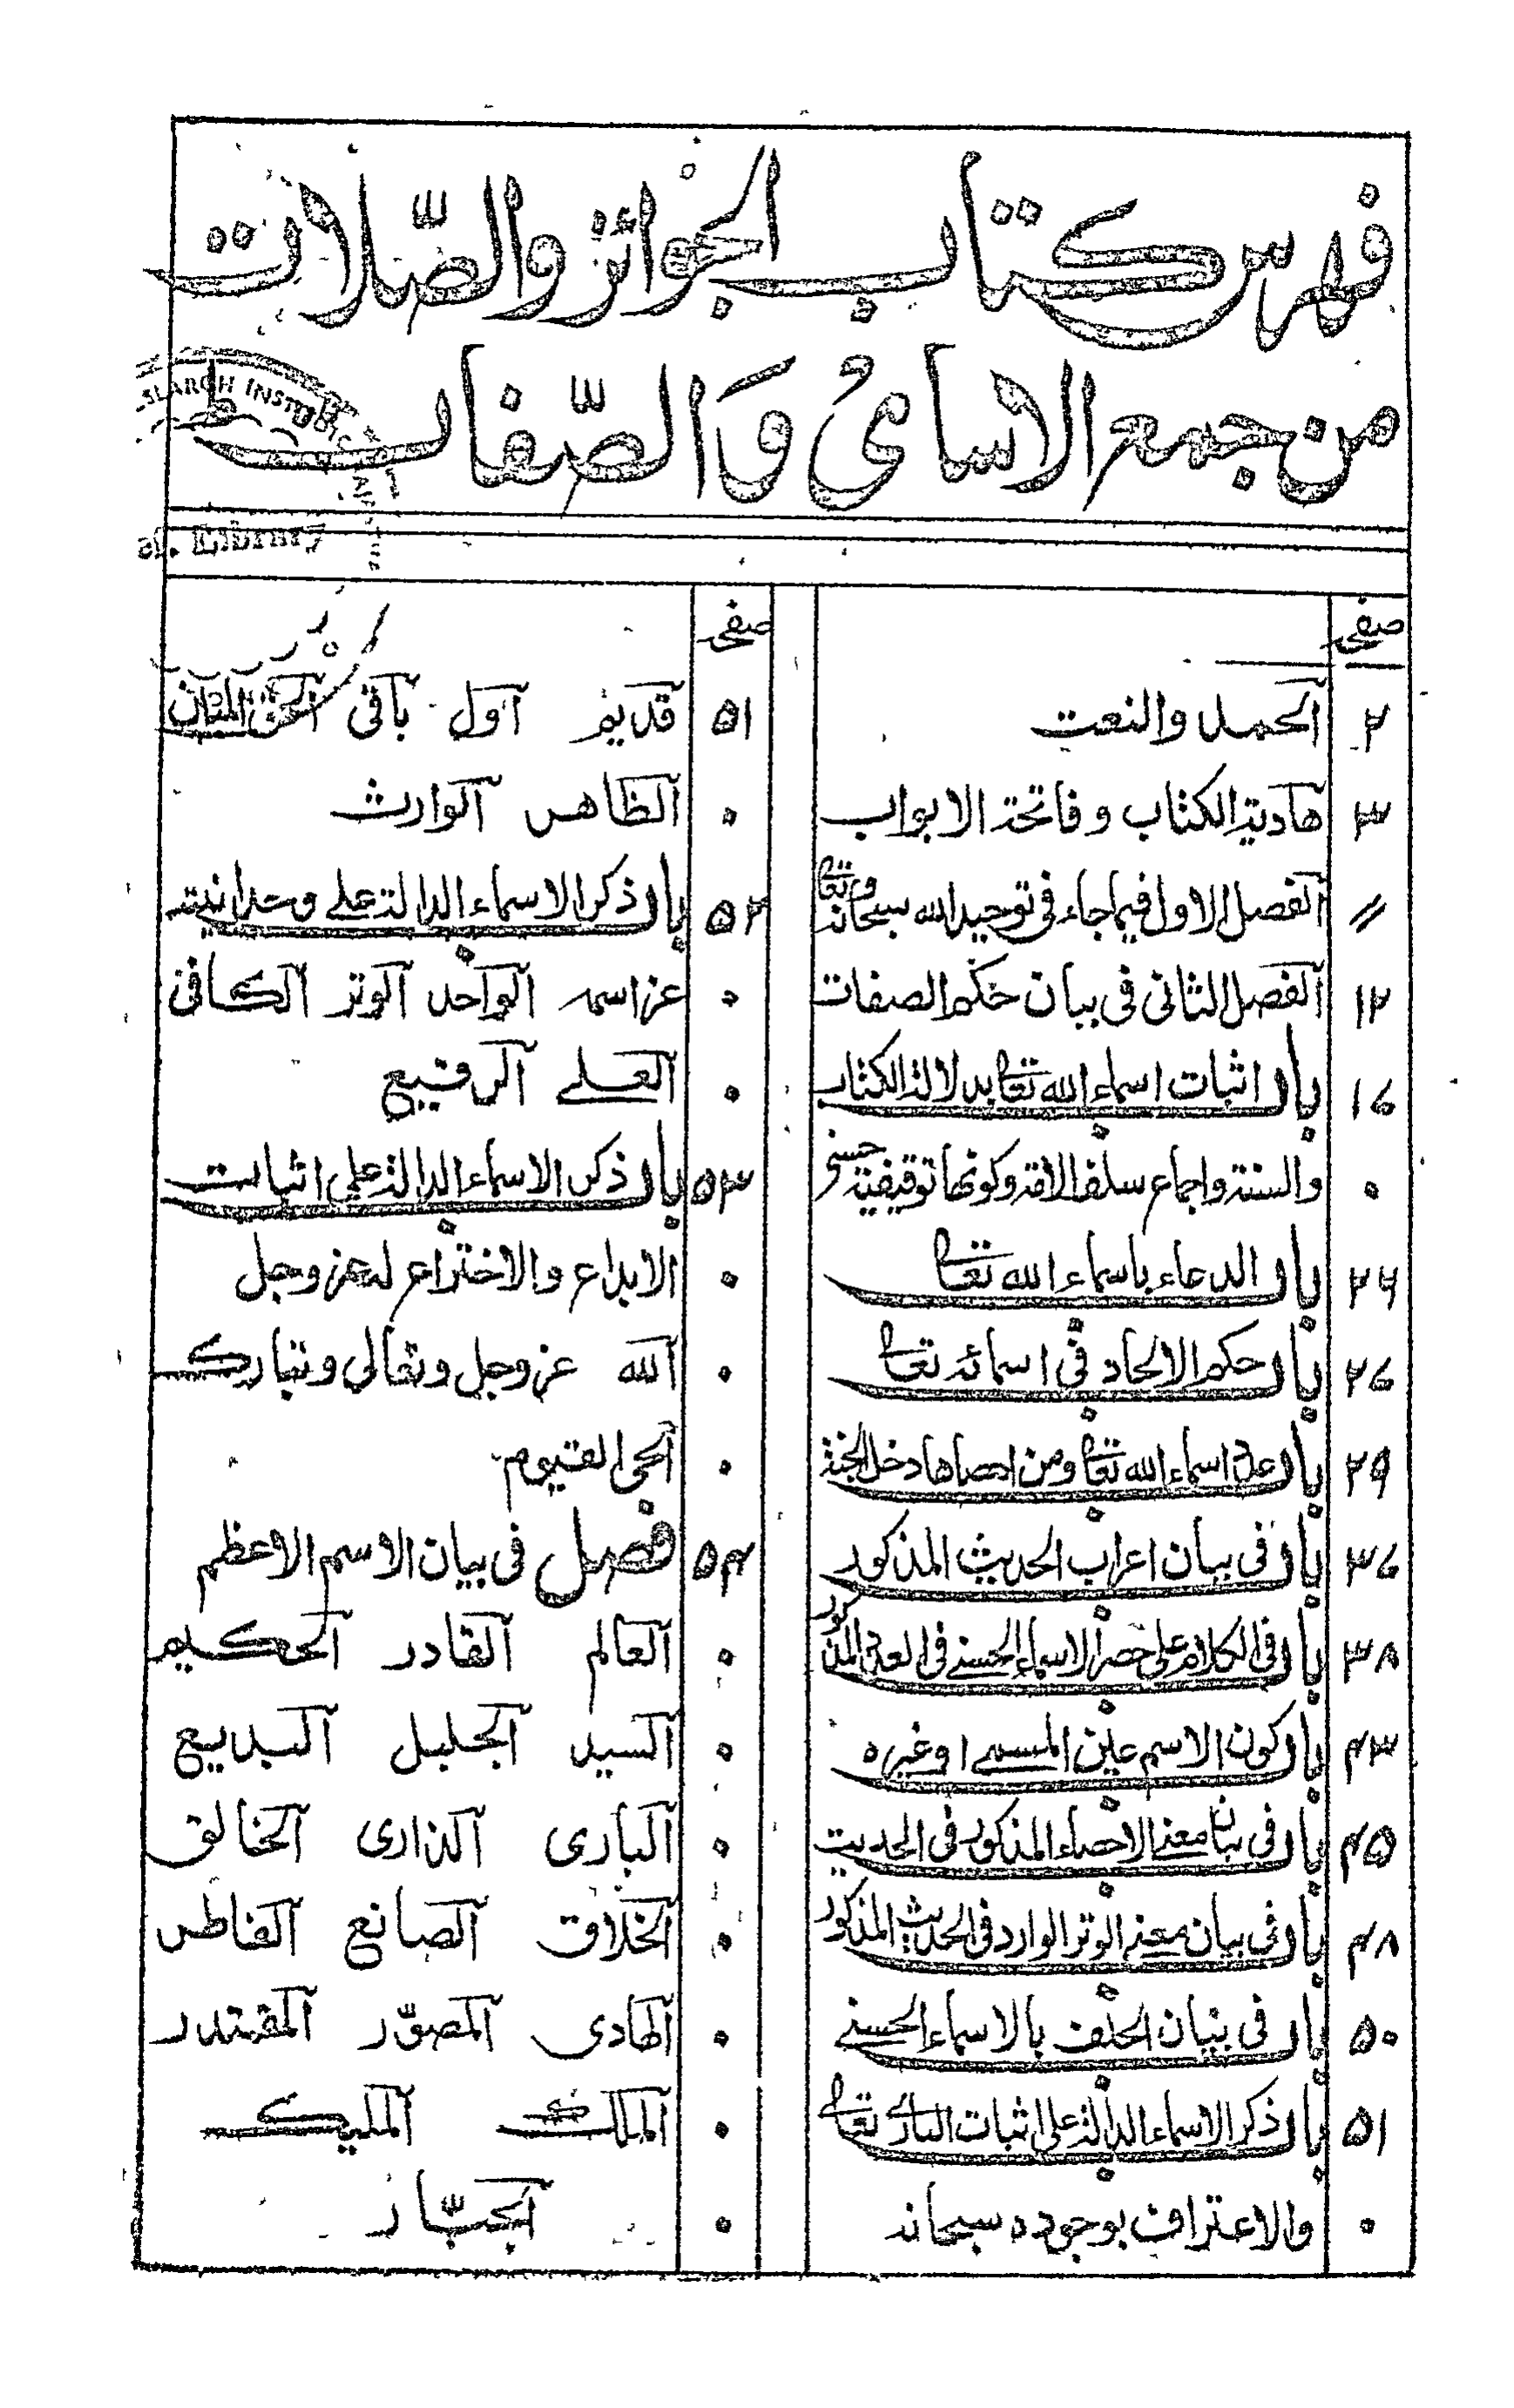 فهرس كتاب الجوائز والصّلات
من جمعة الاسامى وَالصّفات
صفحه
۲ الحمد والنعت
۳ هادية الكتاب وفاتحة الابواب
〃 الفصل الاول فيما جاء فى توحيد الله سبحانه وتعا
۱۲ الفصل الثانى فى بيان حكم الصفات
۱۶ باب اثبات اسماء الله تعا بدلالة الكتاب
۰ والسنة واجماع سلف الامة وكونها توقيفية حسنى
۲۴ باب الدعاء باسماء الله تعا
۲۶ باب حكم الالحاد فى اسمائه تعا
۲۹ باب عدد اسماء الله تعا ومن احصاها دخل الجنة
۳۶ باب فى بيان اعراب الحديث المذكور
۳۸ باب فى الكلام على حصر الاسماء الحسنے فى العدد المذكور
۴۳ باب كون الاسم عين المسمے او غيره
۴۵ باب فى بيان معنے الاحصاء المذكور فى الحديث
۴۸ باب فى بيان معنے الوتر الوارد فى الحديث المذكور
۵۰ باب فى بيان الحلف بالاسماء الحسنے
۵۱ باب ذكر الاسماء الدالة على اثبات البارے تعا
۰ والاعتراف بوجوده سبحانه
صفحه
۵۱ قديم اول باقى الحق المبين
۰ الظاهر الوارث
۵۲ باب ذكر الاسماء الدالة على وحدانيته
۰ عز اسمه الواحد الوتر الكافى
۰ العلے الرفيع
۵۳ باب ذكر الاسماء الدالة على اثبات
۰ الابداع والاختراع له عز وجل
۰ الله عز وجل وتعالى وتبارك
۰ الحى القيوم
۵۴ فصل فى بيان الاسم الاعظم
۰ العالم القادر الحكيم
۰ السيد الجليل البديع
۰ البارى الذارى الخالق
۰ الخلاق الصانع الفاطر
۰ الهادى المصوّر المقتدر
۰ الملك المليك
۰ الجبّار